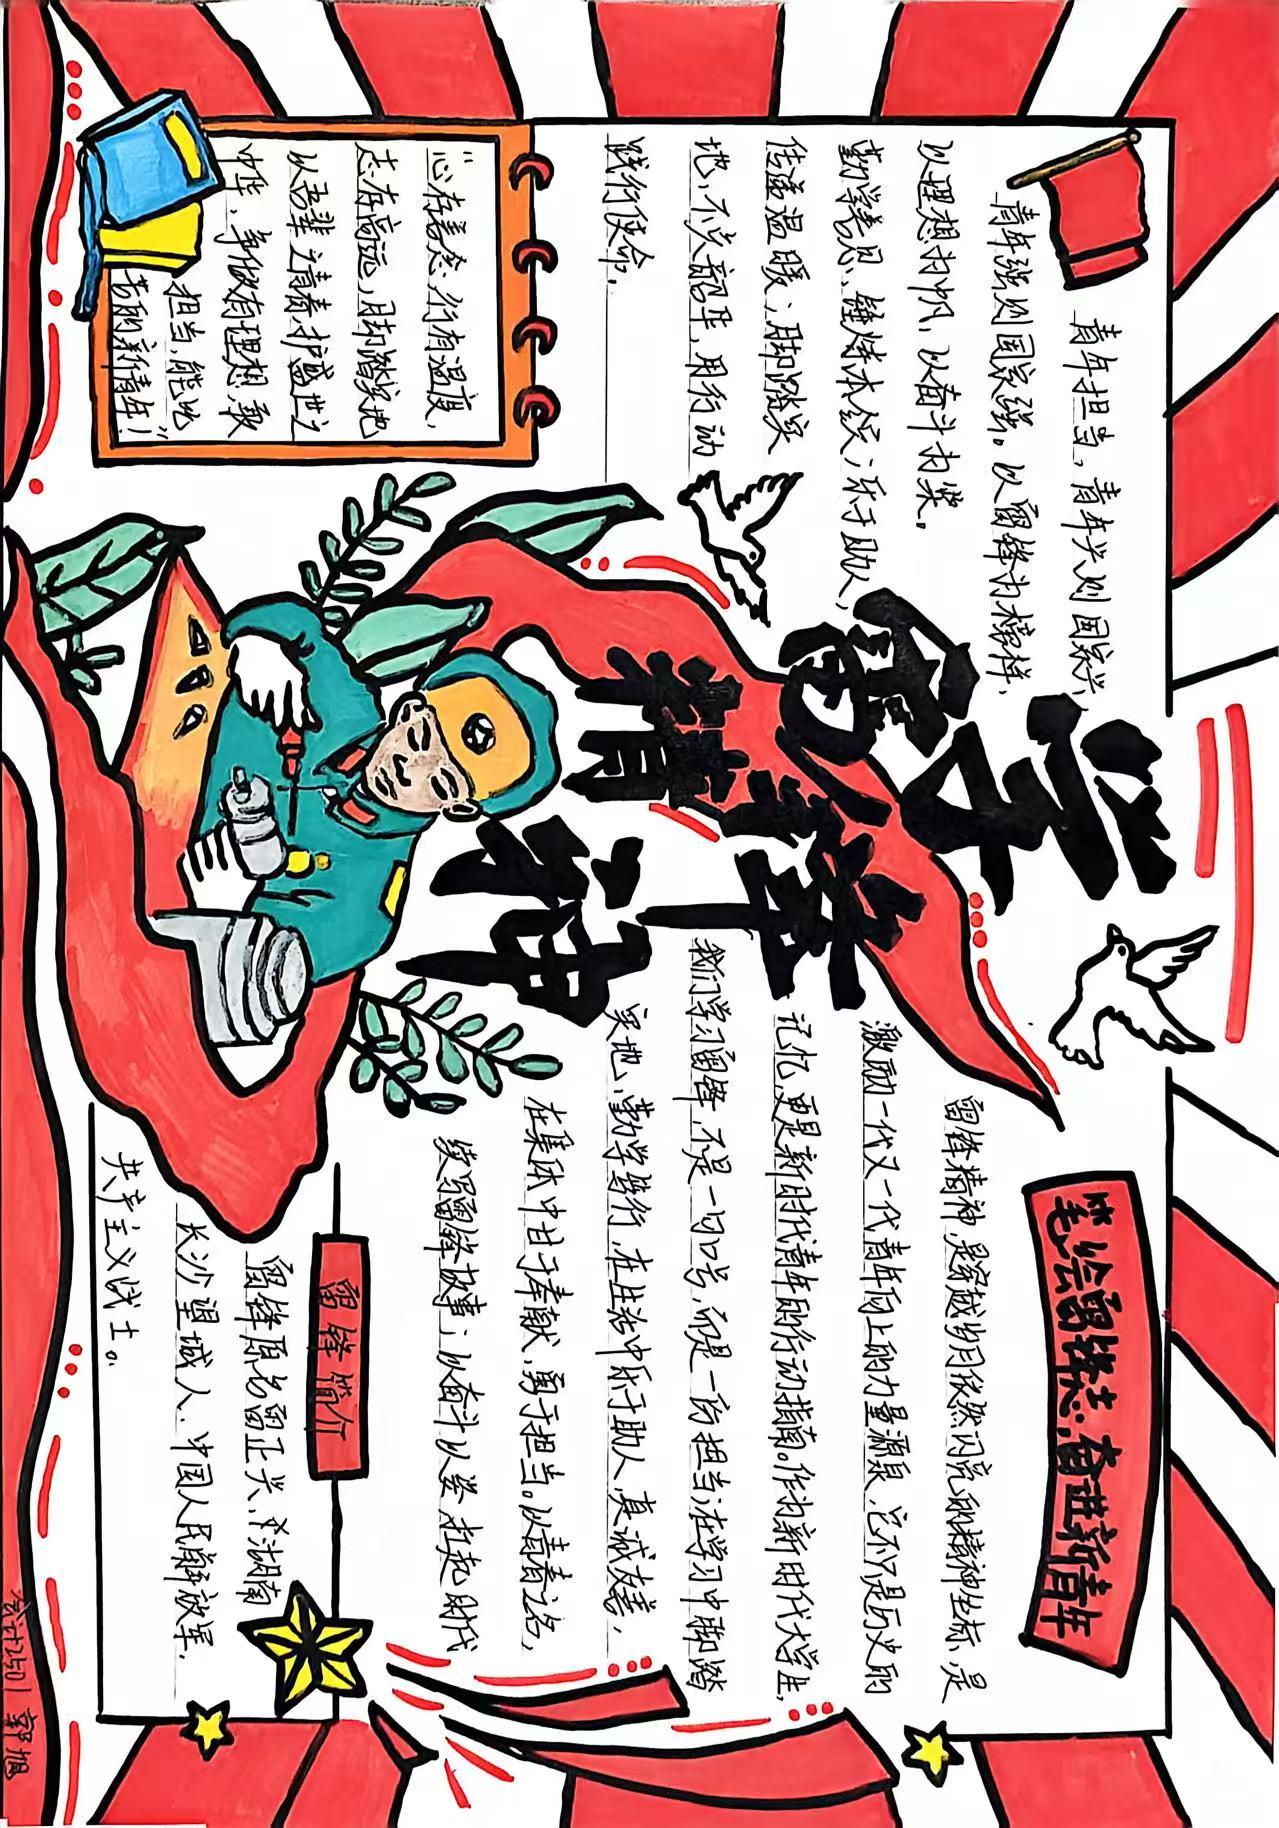 学雷锋精神
青年担当，青年兴则国家兴，
青年强则国家强。以雷锋为榜样，
以理想为帆，以奋斗为桨。
勤学善思、锤炼本领；乐于助人，
传递温暖；脚踏实
地，不负韶华，用行动
践行使命。
“心存善念，行有温度，
志存高远，脚踏实地
以吾辈之青春，护盛世之
中华，争做有理想，敢
担当，能吃
苦的新青年！”
笔绘雷锋志，奋进新青年
雷锋精神，是穿越岁月依然闪亮的精神坐标，是
激励一代又一代青年向上的力量源泉，它不仅是历史的
记忆，更是新时代青年的行动指南。作为新时代大学生，
我们学习雷锋，不是一句口号，而是一份担当，在学习中脚踏
实地、勤学笃行，在生活中乐于助人，真诚友善，
在集体中甘于奉献，勇于担当。以青春之名，
续写雷锋故事；以奋斗以姿，赴起时代
雷锋简介
雷锋原名雷正兴，湖南
长沙望城人、中国人民解放军，
共产主义战士。